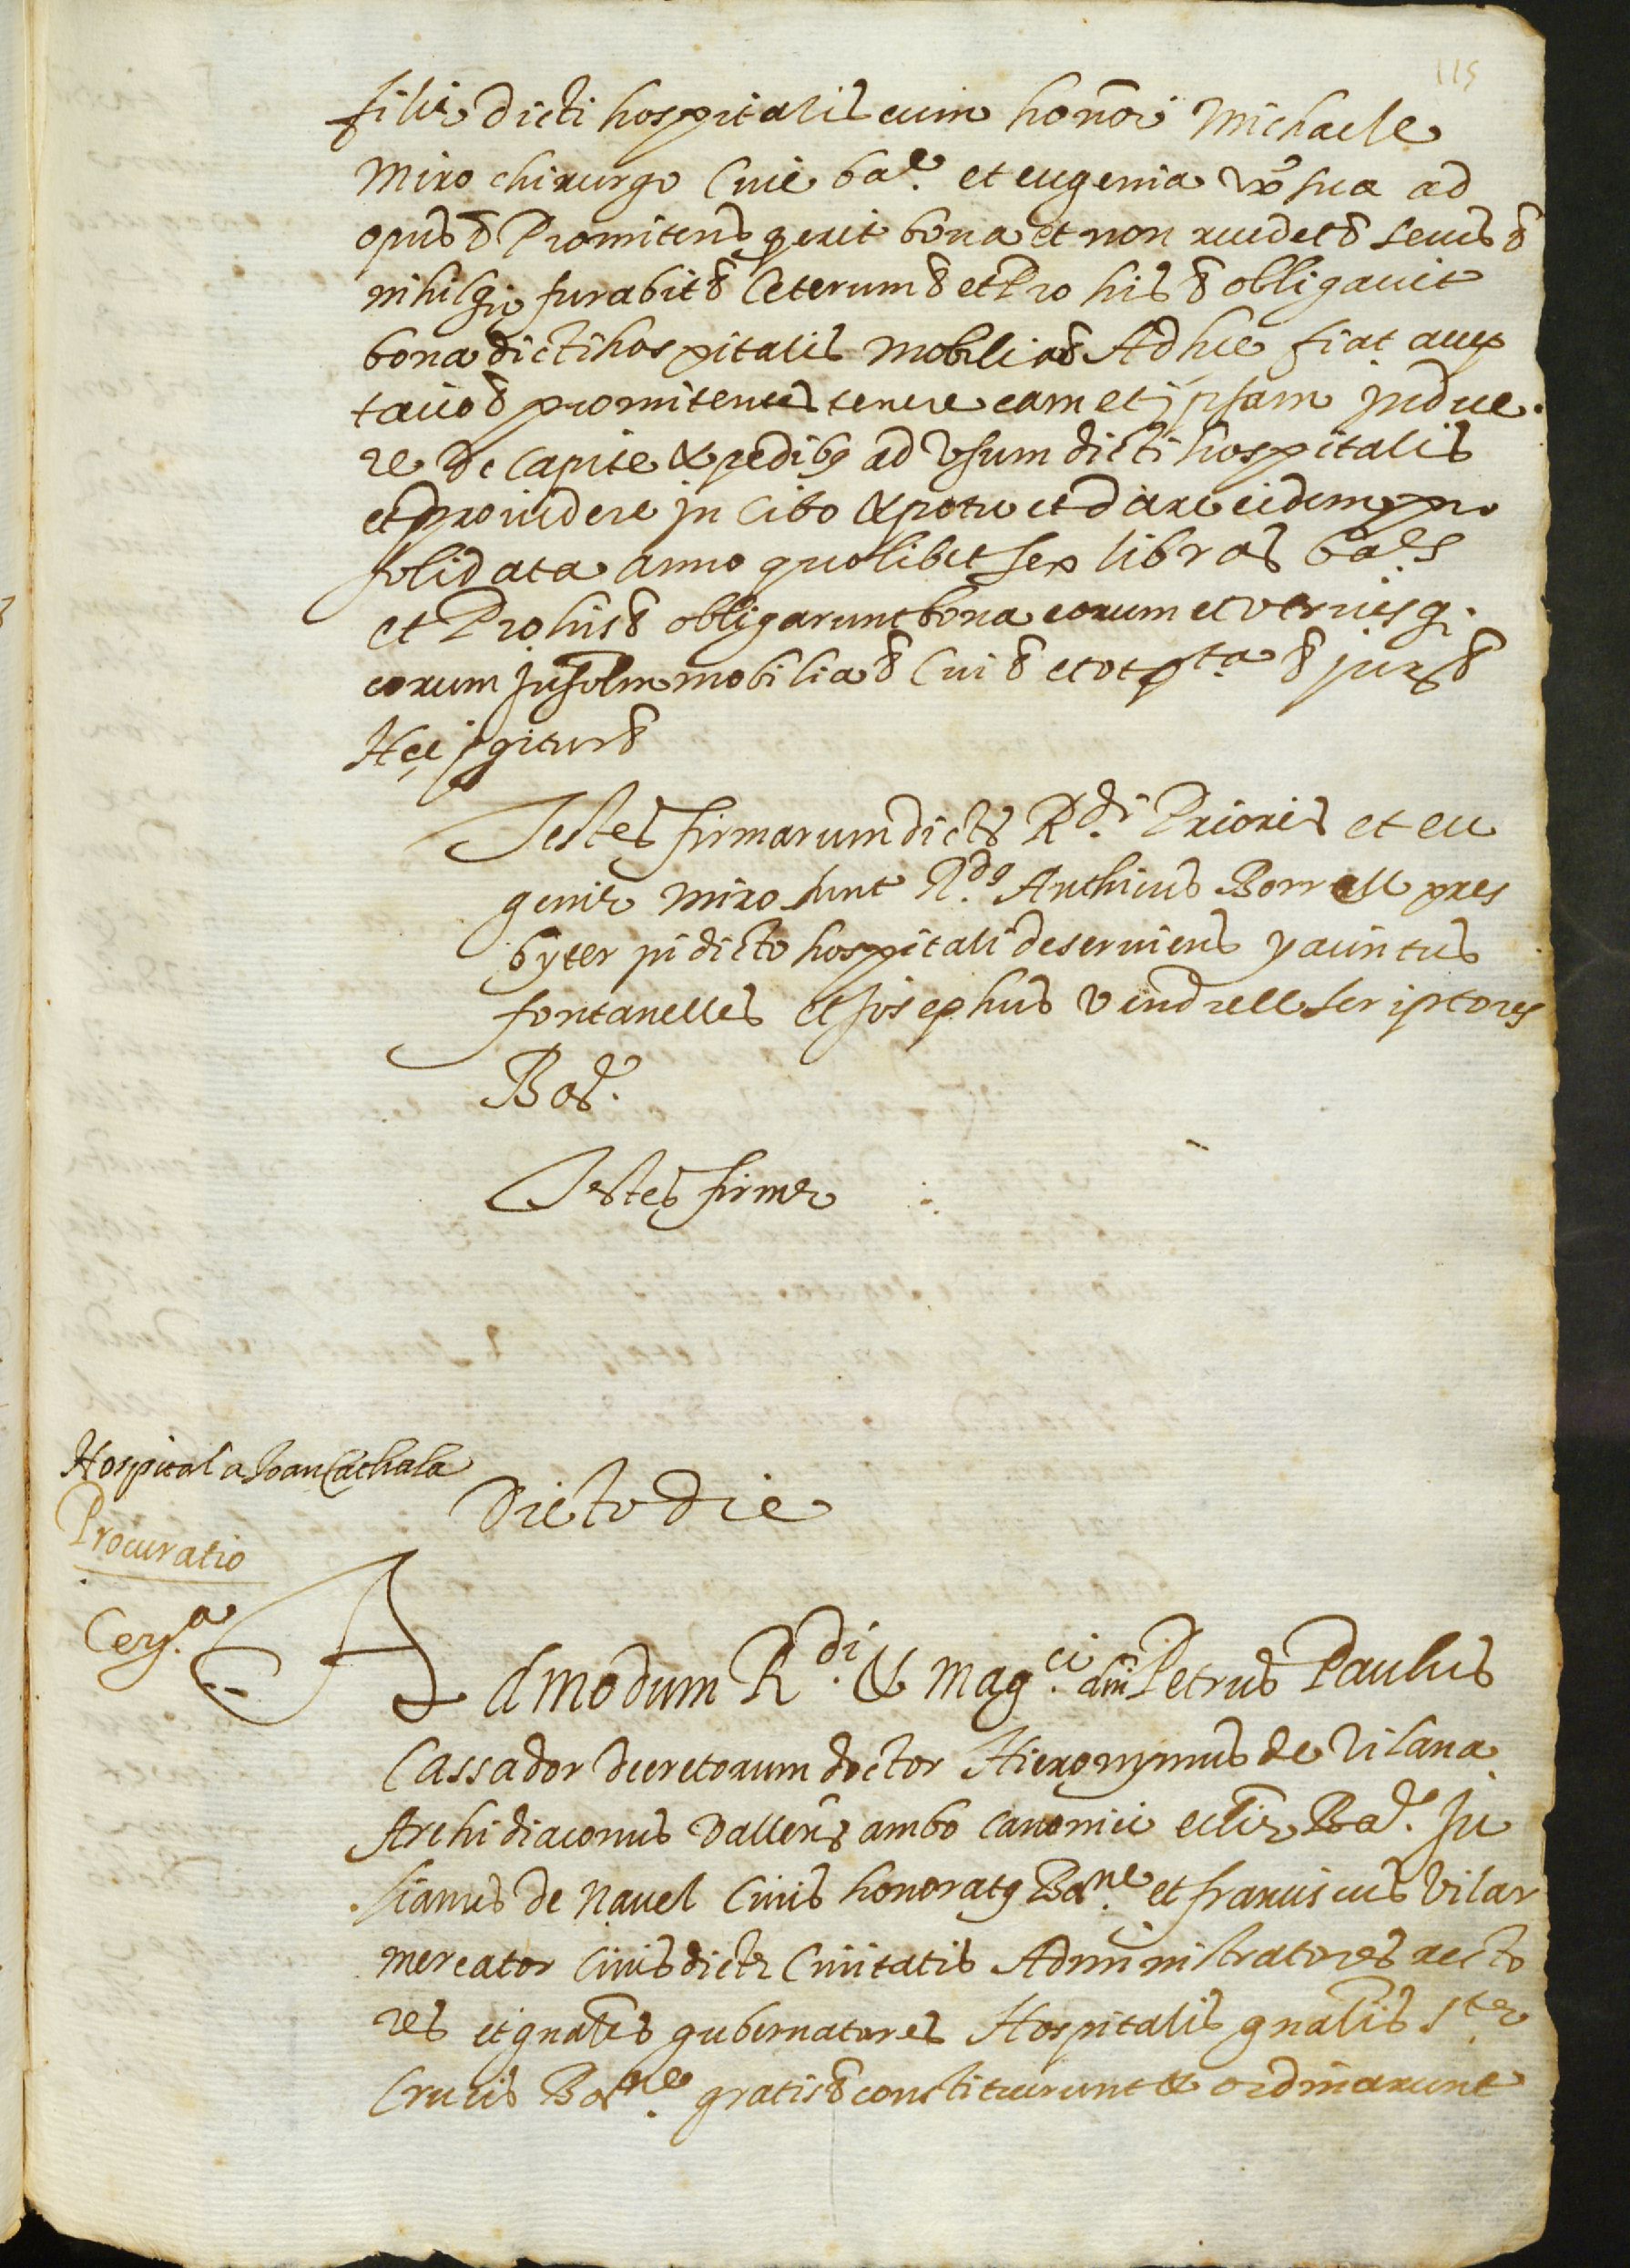 115
filie dicti hospitalis cum honor Michaele
Miro chirurgo Cive bar.e et eugenia vxe sua ad
opus & Promitens q erit bona et non recedet & sevis &
nihilqz furabit & Ceterum & et Pro his & obligavit
bona dicti hospitalis mobilia & Ad hec fiat accep
tacio & promitentes tenere eam et ipsam indue
re de capite & pedibus ad vsum dicti hospitalis
et providere in cibo & potu et dare eidem pro
solidata anno quolibet sex libras bar.s
et Pro his & obligarunt bona eorum et vtriusq.
eorum insolm mobilia & Cui & et ot pta & jur &
Hec igitur &
Testes firmarum dicts R.di Prioris et eu
genie Miro sunt R.ds Anthicus Borrell pres
byter in dicto hospitali deserviens yacintus
fontanelles et Josephus vendrell scriptores
Bar.e
Testes firme
Hospital a Joan Cathala
Procuratio
Dicto die
Cer.a
Admodum R.di & Mag.ci dni Petrus Paulus
Cassador decretorum doctor Hieronymus de Vilana
Archidiaconus Vallens ambo canonici eclie Bar.e Ju
lianus de Navel Civis honoratq Bar.ne et franciscus Vilar
mercator Civis dicte Civitatis Administratores recto
res et gnales gubernatores Hospitalis gnalis S.te
Crucis Bar.ne gratis & constituerunt & ordinarunt